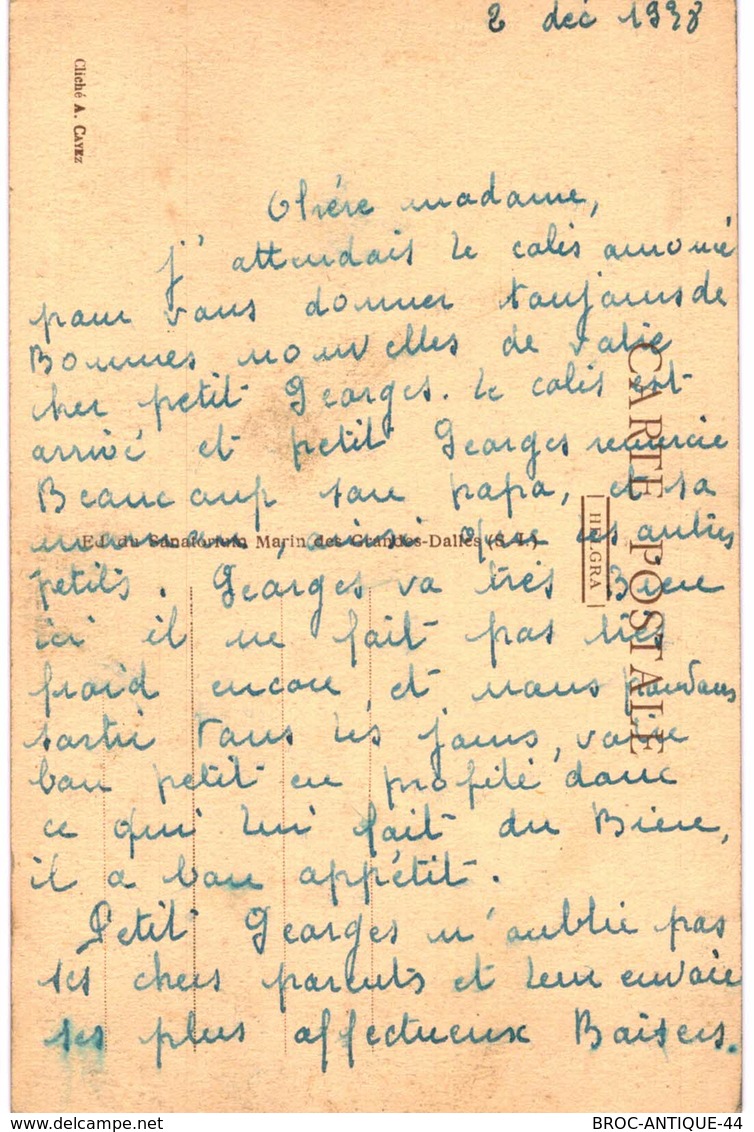 2 déc 1938
Cliché A. CAYEZ
Chére madame,
j'attendais le colis annoncé
pour vous donner toujours de
Bonnes nouvelles de votre
cher petit Georges. Le colis est
arrivé et petit Georges remercie
Beaucoup son papa, et sa
maman, ainsi que les autres
petits. Georges va très Bien
ici il ne fait pas très
froid encore et nous pouvons
sortir tous les jours, votre
bon petit en profite donc
ce qui lui fait du Bien,
il a bon appétit.
Petit Georges n'oublie pas
ses chers parents et leur envoie
ses plus affectueux Baisers.
Ed. du Sanatorium Marin des Grandes-Dalles (S.-I.)
HELGRA
CARTE POSTALE
BROC-ANTIQUE-44